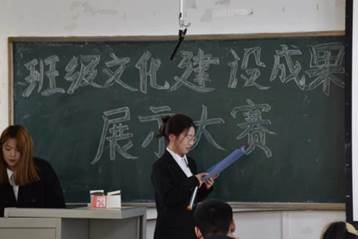 班级文化建设成果
展示大赛